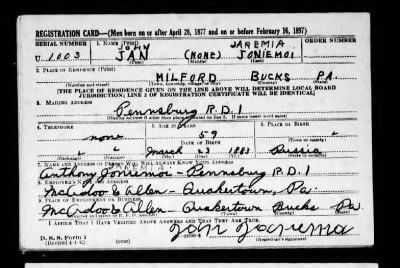 REGISTRATION CARD—(Men born on or after April 28, 1877 and on or before February 16, 1897)
SERIAL NUMBER 1. NAME (Print) ORDER NUMBER
JOHY JAREMIA
U 1003 JAN (NONE) JONIEMOI
(First) (Middle) (Last)
2. PLACE OF RESIDENCE (Print)
MILFORD BUCKS PA.
(THE PLACE OF RESIDENCE GIVEN ON THE LINE ABOVE WILL DETERMINE LOCAL BOARD
JURISDICTION; LINE 2 OF REGISTRATION CERTIFICATE WILL BE IDENTICAL)
3. MAILING ADDRESS
Pennsburg R.D.1
(Mailing address if other than place indicated on line 2. If same insert word same)
4. TELEPHONE 5. AGE IN YEARS 6. PLACE OF BIRTH
none 59 "
DATE OF BIRTH (Town or county)
" " March 23 1883 Russia
(Exchange) (Number) (Mo.) (Day) (Yr.) (State or country)
7. NAME AND ADDRESS OF PERSON WHO WILL ALWAYS KNOW YOUR ADDRESS
Anthony Joniemoi - Pennsburg R.D.1
8. EMPLOYER'S NAME AND ADDRESS
McAdoo & Allen - Quakertown, Pa
9. PLACE OF EMPLOYMENT OR BUSINESS
McAdoo & Allen - Quakertown Bucks Pa
(Number and street or R. F. D. number) (Town) (County) (State)
I AFFIRM THAT I HAVE VERIFIED ABOVE ANSWERS AND THAT THEY ARE TRUE.
D. S. S. Form 1
(Revised 4-1-42) (over)